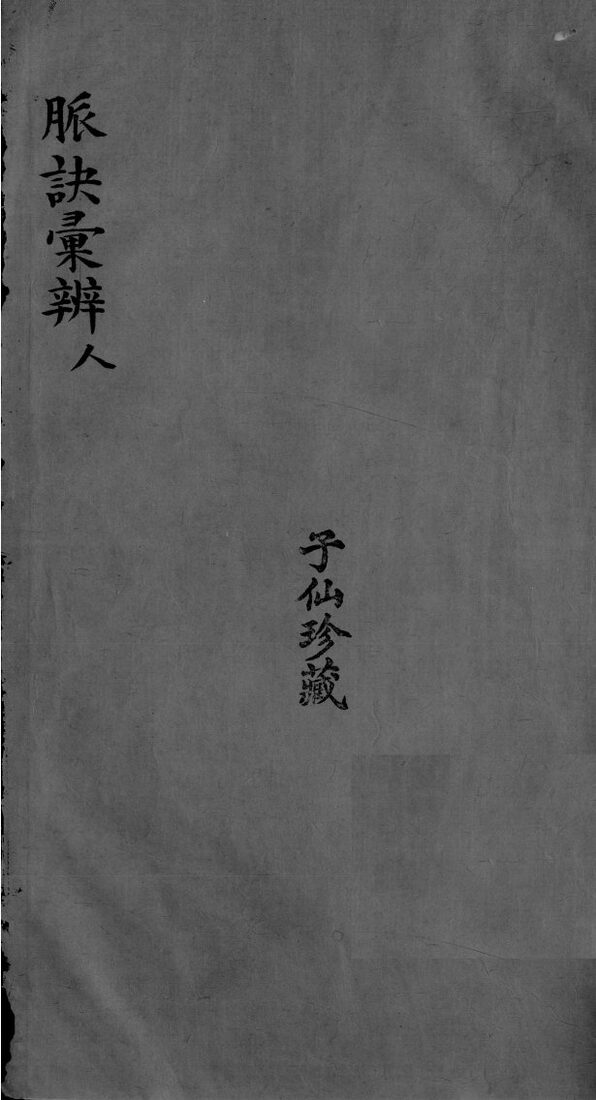 脈訣彙辨 人
子仙珍藏